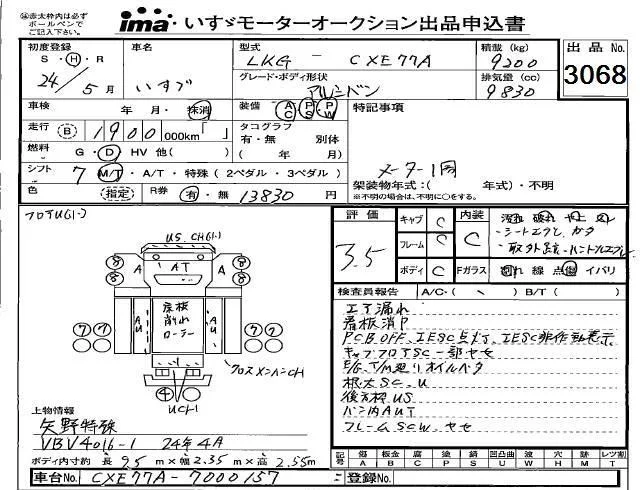 ※赤太枠内は必ず
ボールペンで
ご記入下さい。
ima いすゞモーターオークション出品申込書
初度登録 車名 型式 積載 (kg) 出品No.
S・H・R いすゞ LKG - CXE77A 9200 3068
24年 5月 グレード・ボディ形状 排気量 (cc)
アルミバン 9830
車検 年 月・抹消 装備 AC・PS・PW 特記事項
走行 B 1900 000km「 」 タコグラフ
有・無 別体
燃料 G・D・HV 他( ) ( 年 月)
シフト 7 M/T・A/T・特殊(2ペダル・3ペダル) メーター1回
架装物年式:( 年式)・不明
※不明の場合は、不明に○をする。
色 (指定) R券 有・無 13830円
フロアU(1-)
US.CH(1-)
評価 キャブ C 内装
3.5 フレーム C C ・シートエアレ
ボディ C Fガラス 割れ 線 点傷 イバリ
検査員報告 A/C・( ) B/T( )
エア漏れ
看板消P
P.C.B.OFF、IESC点灯、IESC非作動表示
キャブフロアSC一部ヤセ
E/G、T/M廻りオイルベタ
根太SC.U
後方枠US
バン内AUT
フレームSCW.ヤセ
A A T A
⑧ ⑧ ⑧ ⑧
AU AU
床板
削れ
ローラー
⑦⑦ ⑦⑦
クロスメンバーCH
④
UCH-1
上物情報
矢野特殊
VBV4016-1 24年4A
ボディ内寸約 長 9.5m×幅 2.35m×高 2.55m
記号 傷 A 鈑金 B 腐 C 塗 P 錆 S 凹凸曲 U 波 W 穴 H 跡 M レツ割 T
車台No. CXE77A-7000157 登録No.